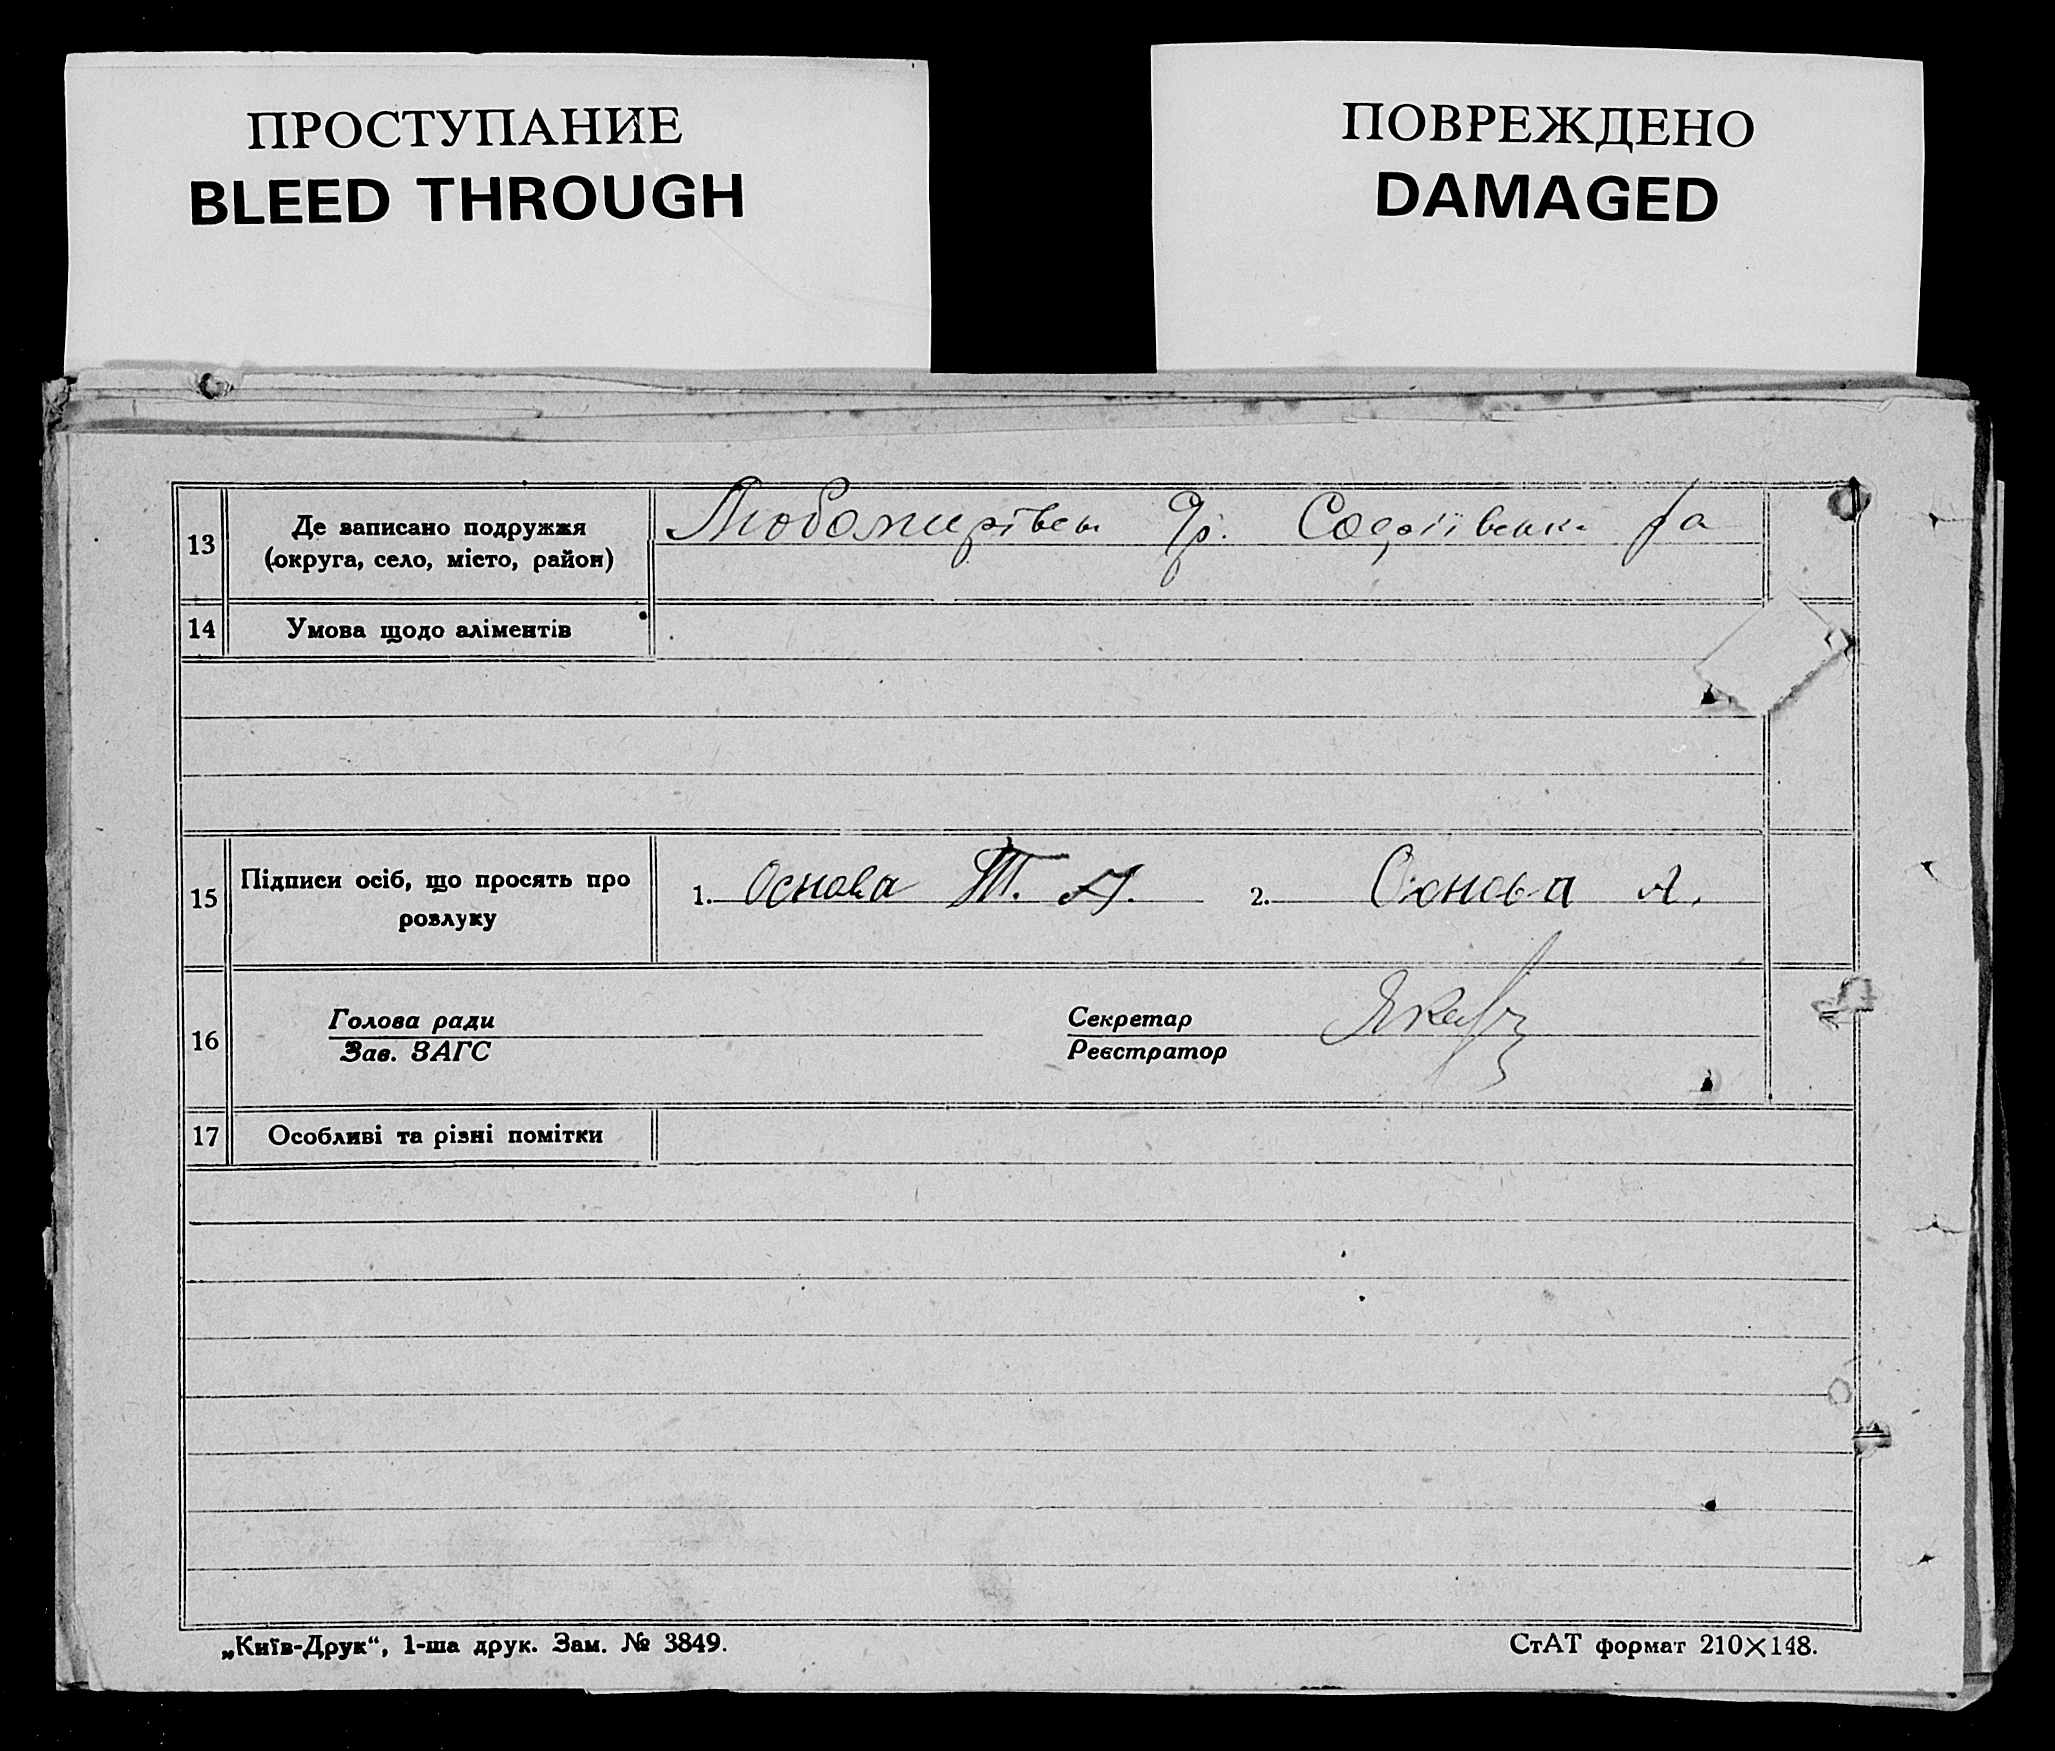 ПРОСТУПАНИЕ
BLEED THROUGH
ПОВРЕЖДЕНО
DAMAGED
13
Де записано подружжя
(округа, село, місто, район)
Софіївськ. р-а
14
Умова щодо аліментів
15
Підписи осіб, що просять про
розлуку
1. Основа Т. А.
2. Основа А.
16
Голова ради
Зав. ЗАГС
Секретар
Реєстратор
17
Особливі та різні помітки
„Київ-Друк“, 1-ша друк. Зам. № 3849.
СтАТ формат 210×148.